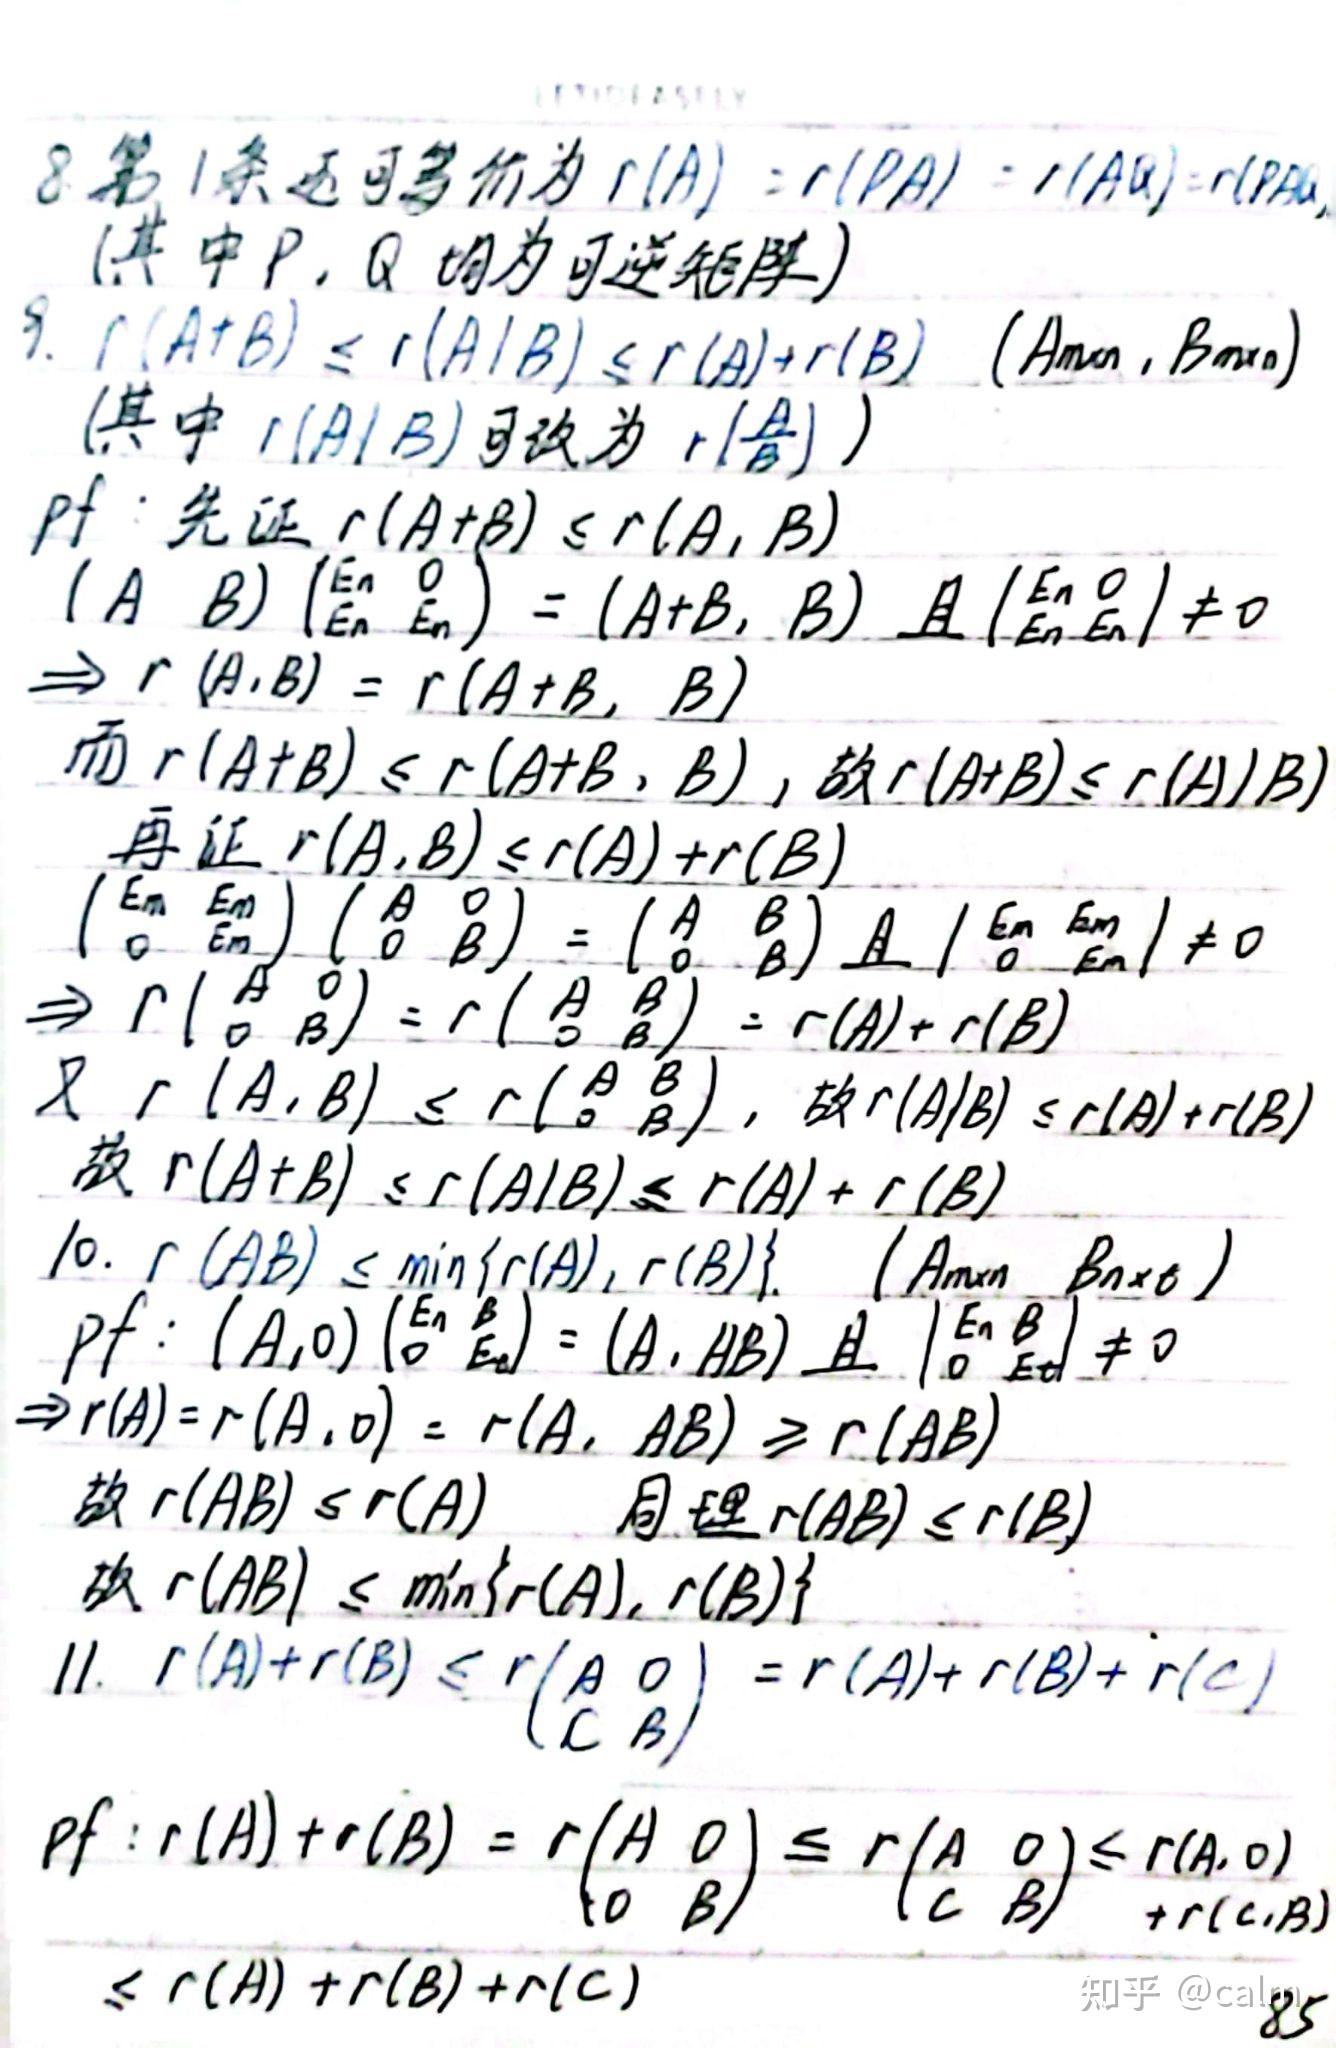 8. 第1条还可等价为 r(A) = r(PA) = r(AQ) = r(PAQ)
(其中P, Q 均为可逆矩阵)
9. r(A+B) ≤ r(A|B) ≤ r(A)+r(B) (Am×n, Bm×n)
(其中 r(A|B) 可改为 r(A/B))
pf: 先证 r(A+B) ≤ r(A, B)
(A B) (En 0; En En) = (A+B, B) 且 |En 0; En En| ≠ 0
⇒ r(A, B) = r(A+B, B)
而 r(A+B) ≤ r(A+B, B), 故 r(A+B) ≤ r(A|B)
再证 r(A, B) ≤ r(A) + r(B)
(Em Em; 0 Em) (A 0; 0 B) = (A B; 0 B) 且 |Em Em; 0 Em| ≠ 0
⇒ r(A 0; 0 B) = r(A B; 0 B) = r(A) + r(B)
又 r(A, B) ≤ r(A B; 0 B), 故 r(A|B) ≤ r(A) + r(B)
故 r(A+B) ≤ r(A|B) ≤ r(A) + r(B)
10. r(AB) ≤ min{r(A), r(B)}. (Am×n Bn×t)
pf: (A, 0) (En B; 0 Et) = (A, AB) 且 |En B; 0 Et| ≠ 0
⇒ r(A) = r(A, 0) = r(A, AB) ≥ r(AB)
故 r(AB) ≤ r(A) 同理 r(AB) ≤ r(B)
故 r(AB) ≤ min{r(A), r(B)}
11. r(A)+r(B) ≤ r(A 0; C B) = r(A) + r(B) + r(C)
pf: r(A) + r(B) = r(A 0; 0 B) ≤ r(A 0; C B) ≤ r(A, 0)
+ r(C, B)
≤ r(A) + r(B) + r(C)
知乎 @calm
85